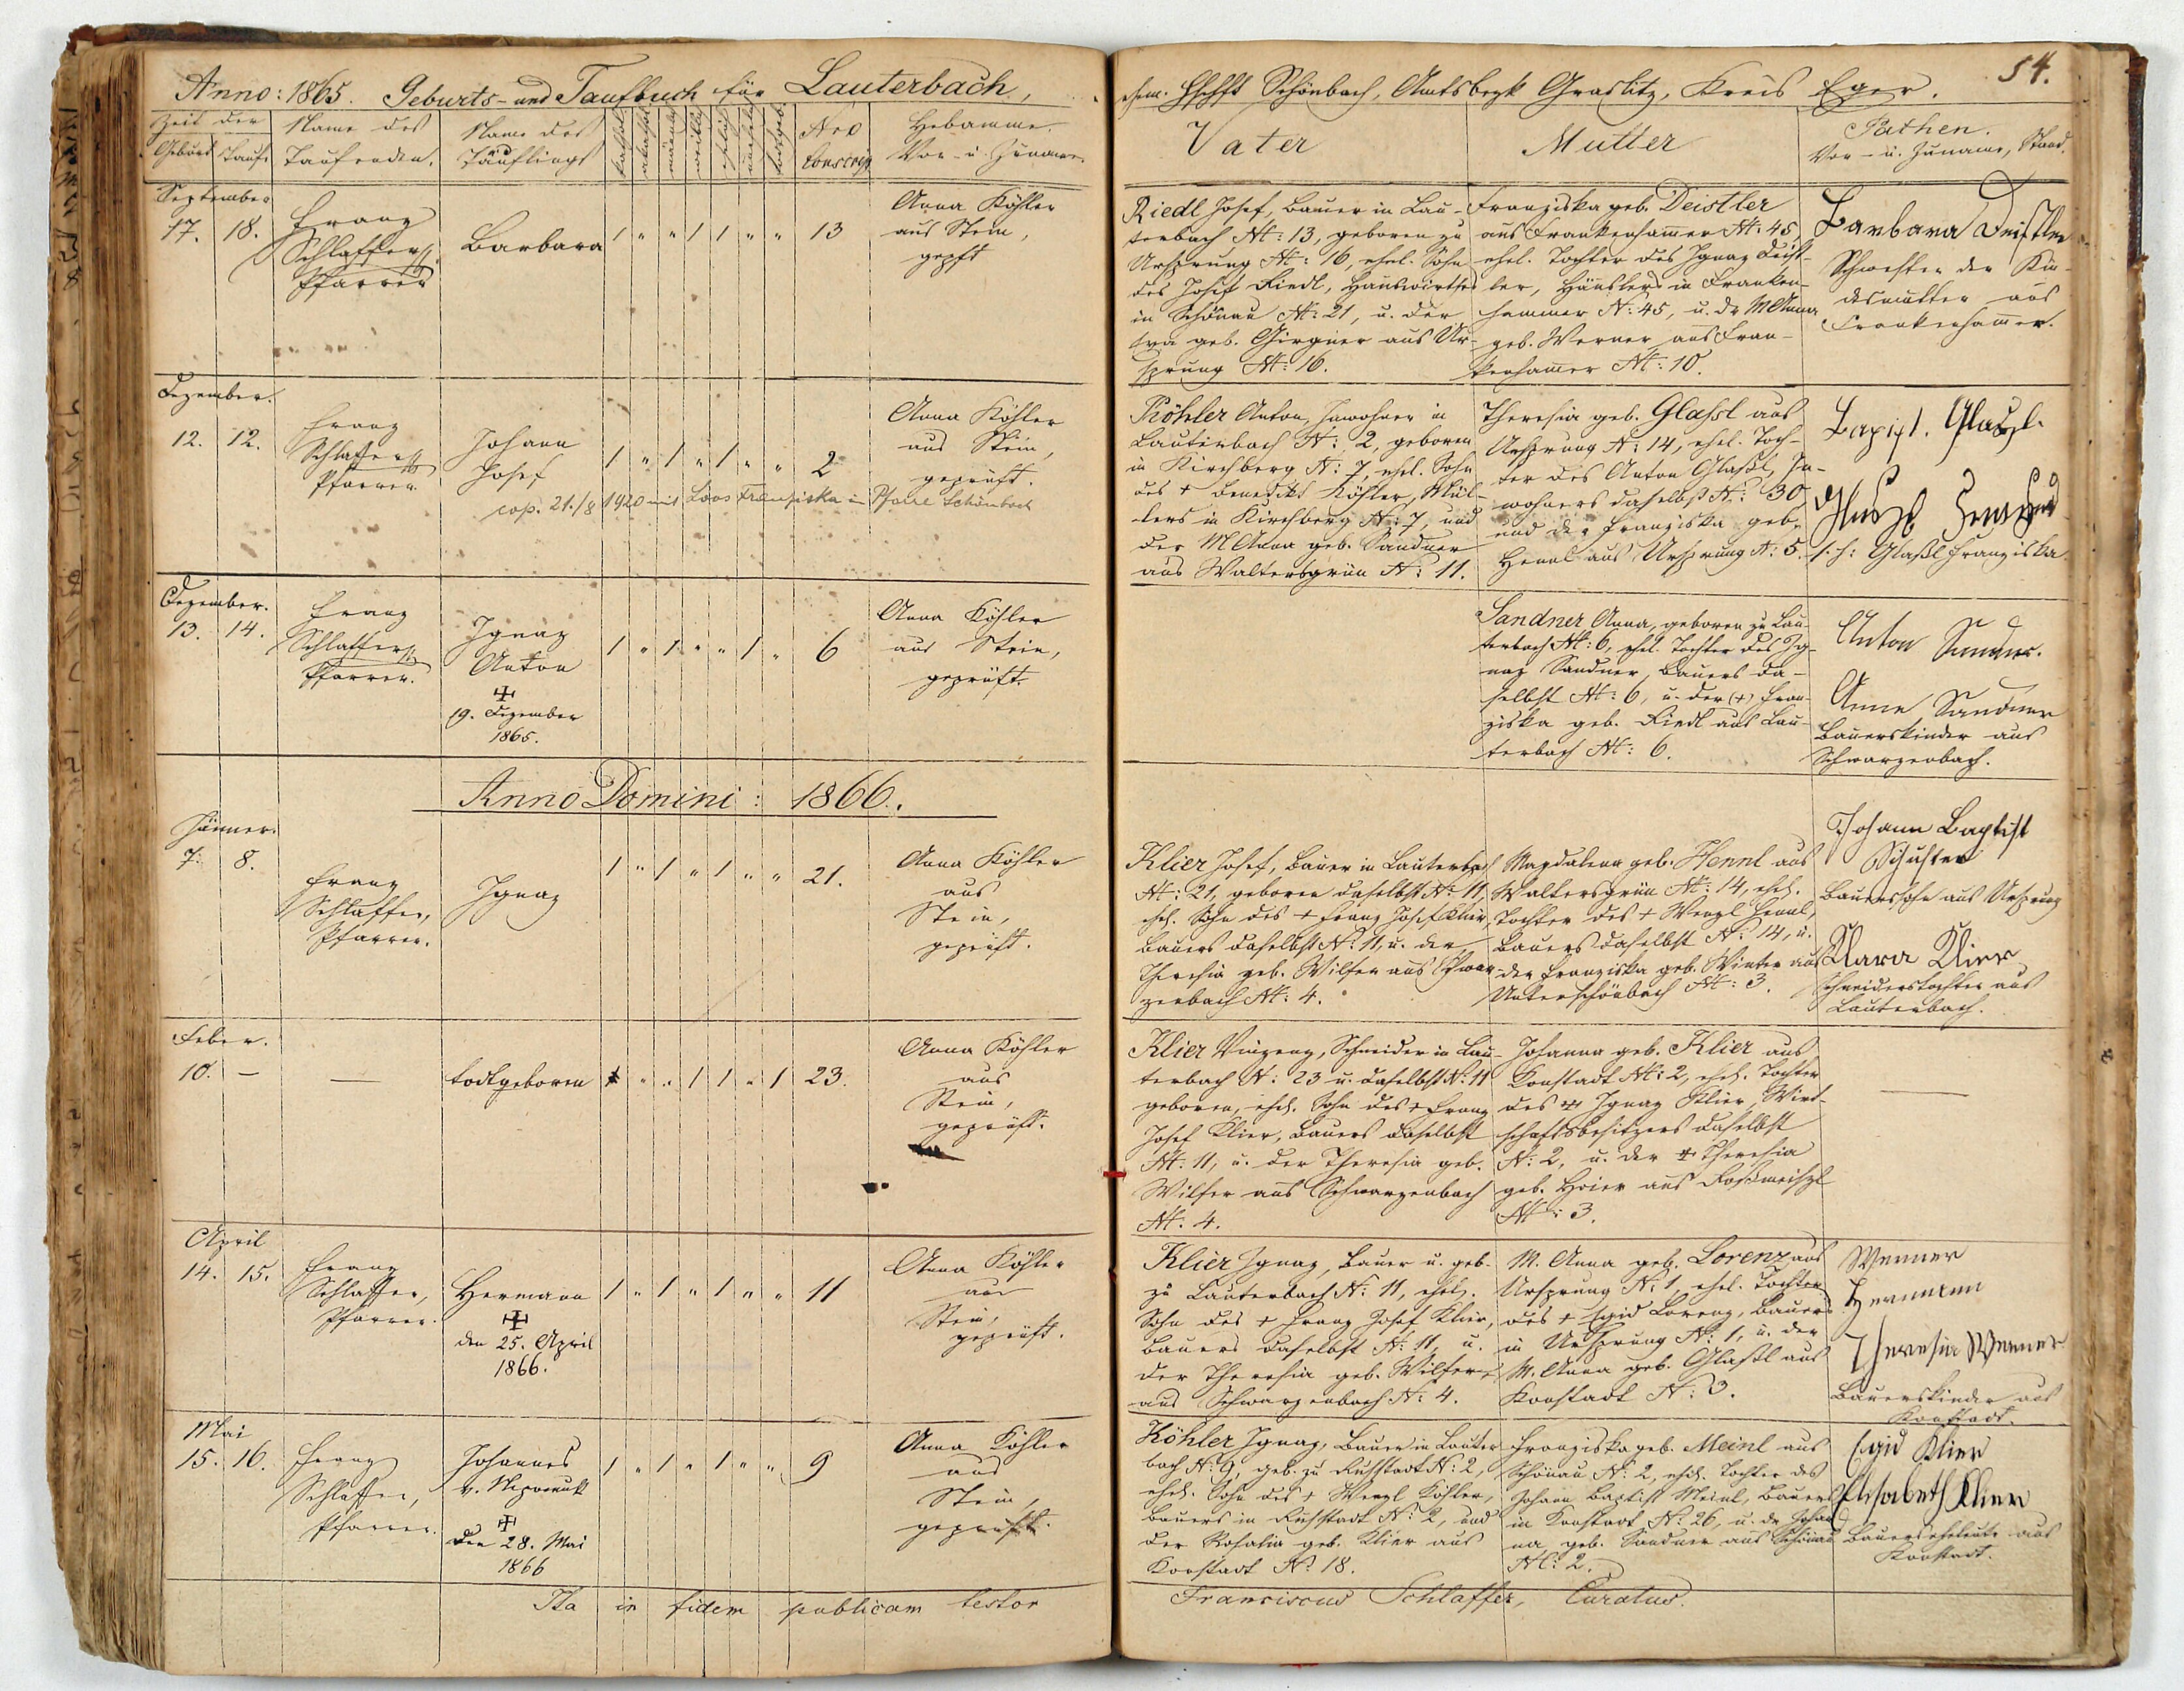 Anno: 1865. Geburts- und Taufbuch für Lauterbach,
Zeit der
Geburt Taufe
Name des
Taufenden.
Name des
Täuflings
Nro
Conscrip
Hebamme.
Vor- u. Zuname.
September
17. 18.
Franz
Schlaffer
Pfarrer
Barbara
1 " " 1 1 " " 13
Anna Köhler
aus Stein,
gepft
Dezember.
12. 12.
Franz
Schlaffer
Pfarrer
Johann
Josef
1 " 1 " 1 " " 2
Anna Köhler
aus Stein,
geprüft.
cop. 21./8 1920 mit Loos Franziska in Pfarre Schönbach
Dezember.
13. 14.
Franz
Schlaffer
Pfarrer.
Ignaz
Anton
19. Dezember
1865.
1 " 1 " " 1 " 6
Anna Köhler
aus Stein,
geprüft.
Anno Domini: 1866.
Jänner.
7. 8.
Franz
Schlaffer,
Pfarrer.
Ignaz
1 " 1 " 1 " " 21.
Anna Köhler
aus
Stein,
geprüft.
Feber.
10. —
—
todtgeboren
" " 1 1 " 1 23.
Anna Köhler
aus
Stein,
geprüft.
April
14. 15.
Franz
Schlaffer,
Pfarrer.
Hermann
den 25. April
1866.
1 " 1 " 1 " " 11
Anna Köhler
aus
Stein,
geprüft.
Mai
15. 16.
Franz
Schlaffer,
Pfarrer.
Johannes
v. Nepomuk
den 28. Mai
1866
1 " 1 " 1 " " 9
Anna Köhler
aus
Stein,
geprüft.
Ita in fidem publicam testor
54.
Schönbach, Amtsbezk Graslitz, Kreis Eger.
Vater
Mutter
Pathen.
Vor- u. Zuname, Stand.
Riedl Josef, Bauer in Lau-
terbach N: 13, geboren zu
Ursprung N: 16, ehel. Sohn
des Josef Riedl, Hauswirthes
in Schönau N: 21, u. der
Eva geb. Girgner aus Ur-
sprung N: 16.
Franziska geb. Deistler
aus Frankenhammer N: 45,
ehel. Tochter des Ignaz Deist-
ler, Häuslers in Franken-
hammer N: 45, u. der M Anna
geb. Werner aus Fran-
kenhammer N: 10.
Barbara Deistler
Schwester der Kin-
desmutter aus
Frankenhammer.
Köhler Anton, Inwohner in
Lauterbach N: 2, geboren
in Kirchberg N: 7, ehel. Sohn
des + Benedikt Köhler, Mül-
lers in Kirchberg N: 7, und
der M Anna geb. Sandner
aus Waltersgrün N: 11.
Theresia geb. Glassl aus
Ursprung N: 14, ehel. Toch-
ter des Anton Glaßl, In-
wohners daselbst N: 30
und der Franziska geb.
Hennl aus Ursprung N: 5.
Glaßl Franziska
Sandner Anna, geboren zu Lau-
terbach N: 6, ehel. Tochter des Ig-
naz Sandner, Bauers da-
selbst N: 6, u. der (+) Fran-
ziska geb. Riedl aus Lau-
terbach N: 6.
Anton Sandner.
Anna Sandner
Bauerskinder aus
Schwarzenbach.
Klier Josef, Bauer in Lauterbach
N: 21, geboren daselbst N: 11,
ehel. Sohn des + Franz Josef Klier,
Bauers daselbst N: 11, u. der
Theresia geb. Wilfer aus Schwar-
zenbach N: 4.
Magdalena geb. Hennl aus
Waltersgrün N: 14, ehel.
Tochter des + Wenzl Hennl,
Bauers daselbst N: 14, u.
der Franziska geb. Winter aus
Unterschönbach N: 3.
Johann Baptist
Schuster
Bauerssohn aus Ursprung
Klara Klier
Schneiderstochter aus
Lauterbach.
Klier Vinzenz, Schneider in Lau-
terbach N: 23 u. daselbst N: 11
geboren, ehel. Sohn des + Franz
Josef Klier, Bauers daselbst
N: 11, u. der Theresia geb.
Wilfer aus Schwarzenbach
N. 4.
Johanna geb. Klier aus
Konstadt N: 2, ehel. Tochter
des + Ignaz Klier, Wirt-
schaftsbesitzers daselbst
N: 2, u. der + Theresia
geb. Hoier aus Roßmeisl
N: 3.
—
Klier Ignaz, Bauer u. geb.
zu Lauterbach N: 11, ehel.
Sohn des + Franz Josef Klier,
Bauers daselbst N: 11, u.
der Theresia geb. Wilfer
aus Schwarzenbach N: 4.
M. Anna geb. Lorenz aus
Ursprung N: 1, ehel. Tochter
des + Egid Lorenz, Bauers
in Ursprung N: 1, u. der
M. Anna geb. Glaßl aus
Konstadt N: 3.
Werner
Hermann
Theresia Werner
Bauerskinder aus
Konstadt.
Köhler Ignaz, Bauer in Lauter
bach N: 9, geb. zu Ruhstadt N: 2,
ehel. Sohn des + Wenzl Köhler,
Bauers in Ruhstadt N: 2, und
der Rosalia geb. Klier aus
Konstadt N: 18.
Franziska geb. Meinl aus
Schönau N: 2, ehel. Tochter des
Johann Baptist Meinl, Bauers
in Konstadt N: 26, u. der Johan
na geb. Sandner aus Schönau
N: 2.
Egid Klier
Elisabeth Klier
Bauerseheleute aus
Konstadt.
Franciscus Schlaffer, Curatus.